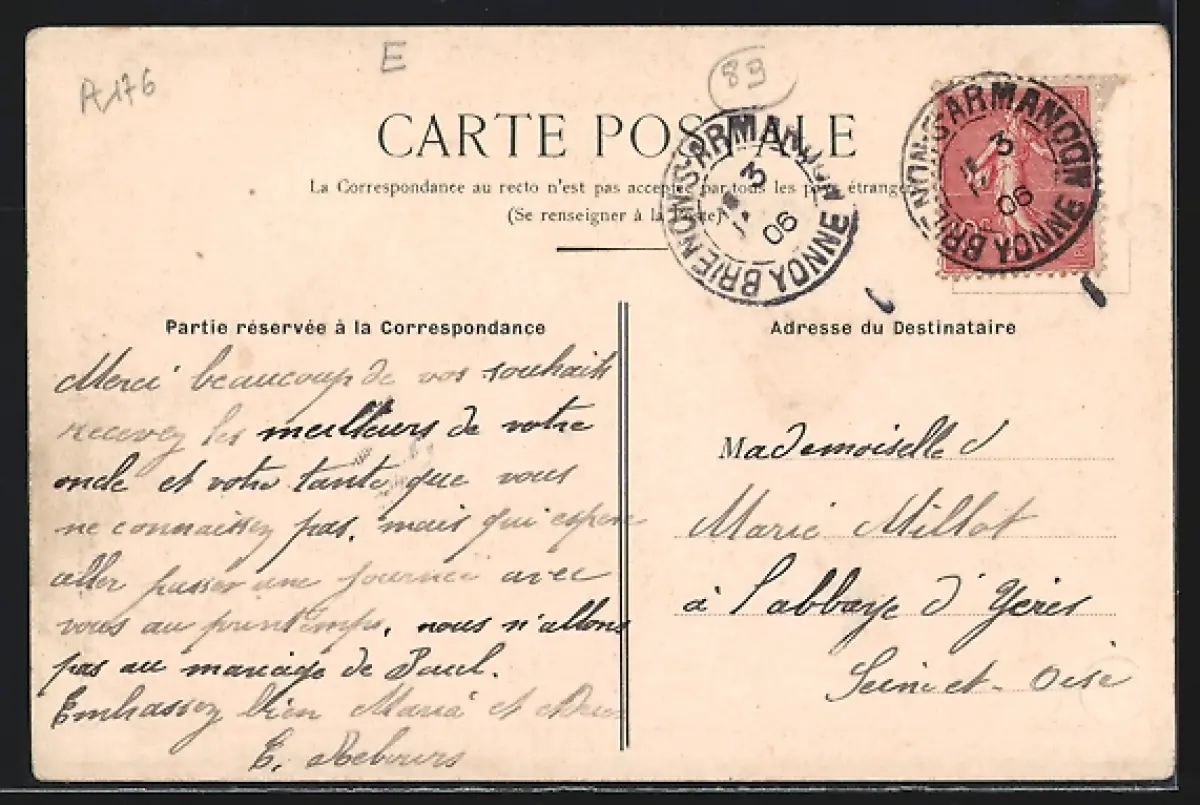 A176
E
89
CARTE POSTALE
La Correspondance au recto n'est pas acceptée par tous les pays étrangers
(Se renseigner à la Poste)
BRIENON-S-ARMANÇON
3
06
YONNE
BRIENON-S-ARMANÇON
3
06
YONNE
Partie réservée à la Correspondance
Merci beaucoup de vos souhaits
recevez les meilleurs de votre
oncle et votre tante que vous
ne connaissez pas, mais qui espère
aller passer une journée avec
vous au printemps, nous n'allons
pas au mariage de Paul.
Embrassez bien Maria et
E. Rebours
Adresse du Destinataire
Mademoiselle
Marie Millot
à l'abbaye d'Yères
Seine et-Oise